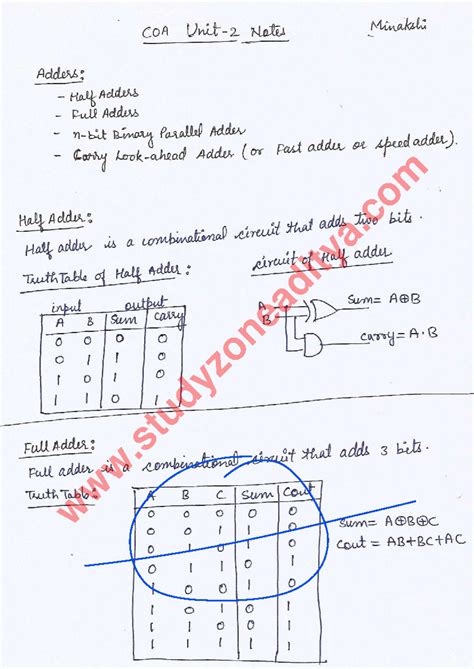 COA Unit-2 Notes
Minakshi
Adders:
- Half Adders
- Full Adders
- n-bit Binary Parallel Adder
- Carry Look-ahead Adder (or Fast adder or speed adder).
Half Adder:
Half adder is a combinational circuit that adds two bits.
Truth Table of Half Adder:
circuit of Half adder
input output
A B Sum Carry
0 0 0 0
0 1 1 0
1 0 1 0
1 1 0 1
A
B
Sum = A⊕B
carry = A·B
Full Adder:
Full adder is a combinational circuit that adds 3 bits.
Truth Table:
A B C Sum Cout
0 0 0 0 0
0 0 1 1 0
0 1 0 1 0
0 1 1 0
1 0 0 1 0
1 0 1 0 1
1 1 0 0 1
1 1 1 1 1
Sum = A⊕B⊕C
Cout = AB+BC+AC
www.studyzoneaditya.com